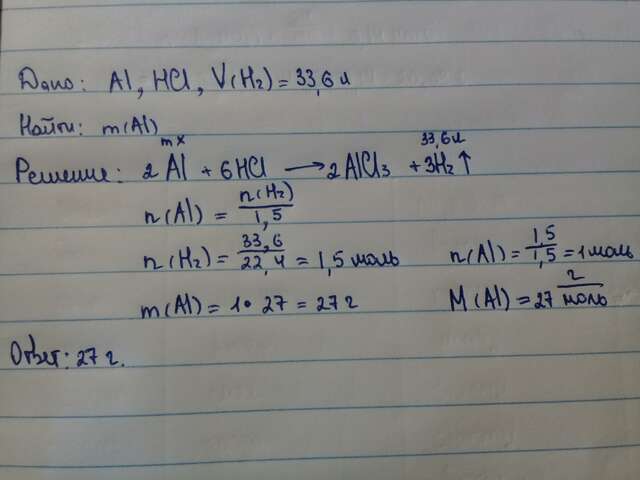 Дано: Al, HCl, V(H₂) = 33,6 л
Найти: m(Al)
m x 33,6 л
Решение: 2Al + 6HCl ⟶ 2AlCl₃ + 3H₂↑
n(Al) = n(H₂)/1,5
n(H₂) = 33,6/22,4 = 1,5 моль n(Al) = 1,5/1,5 = 1 моль
m(Al) = 1 • 27 = 27 г M(Al) = 27 г/моль
Ответ: 27 г.